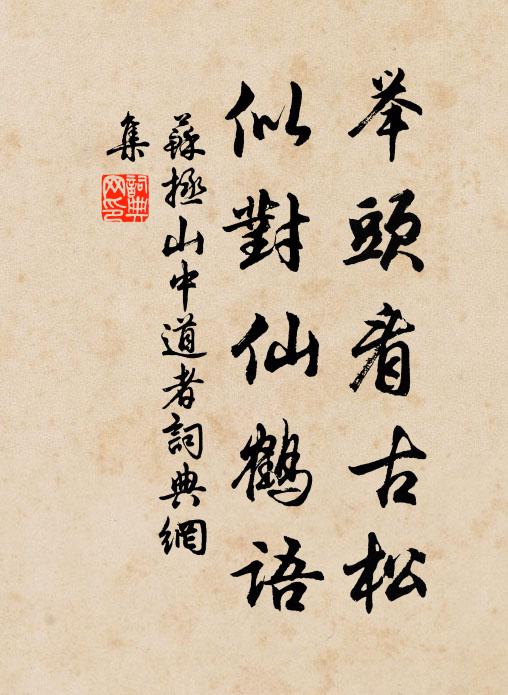 举頭看古松
似對仙鶴語
蘇拯山中道者詞典網
集
詞典
网印